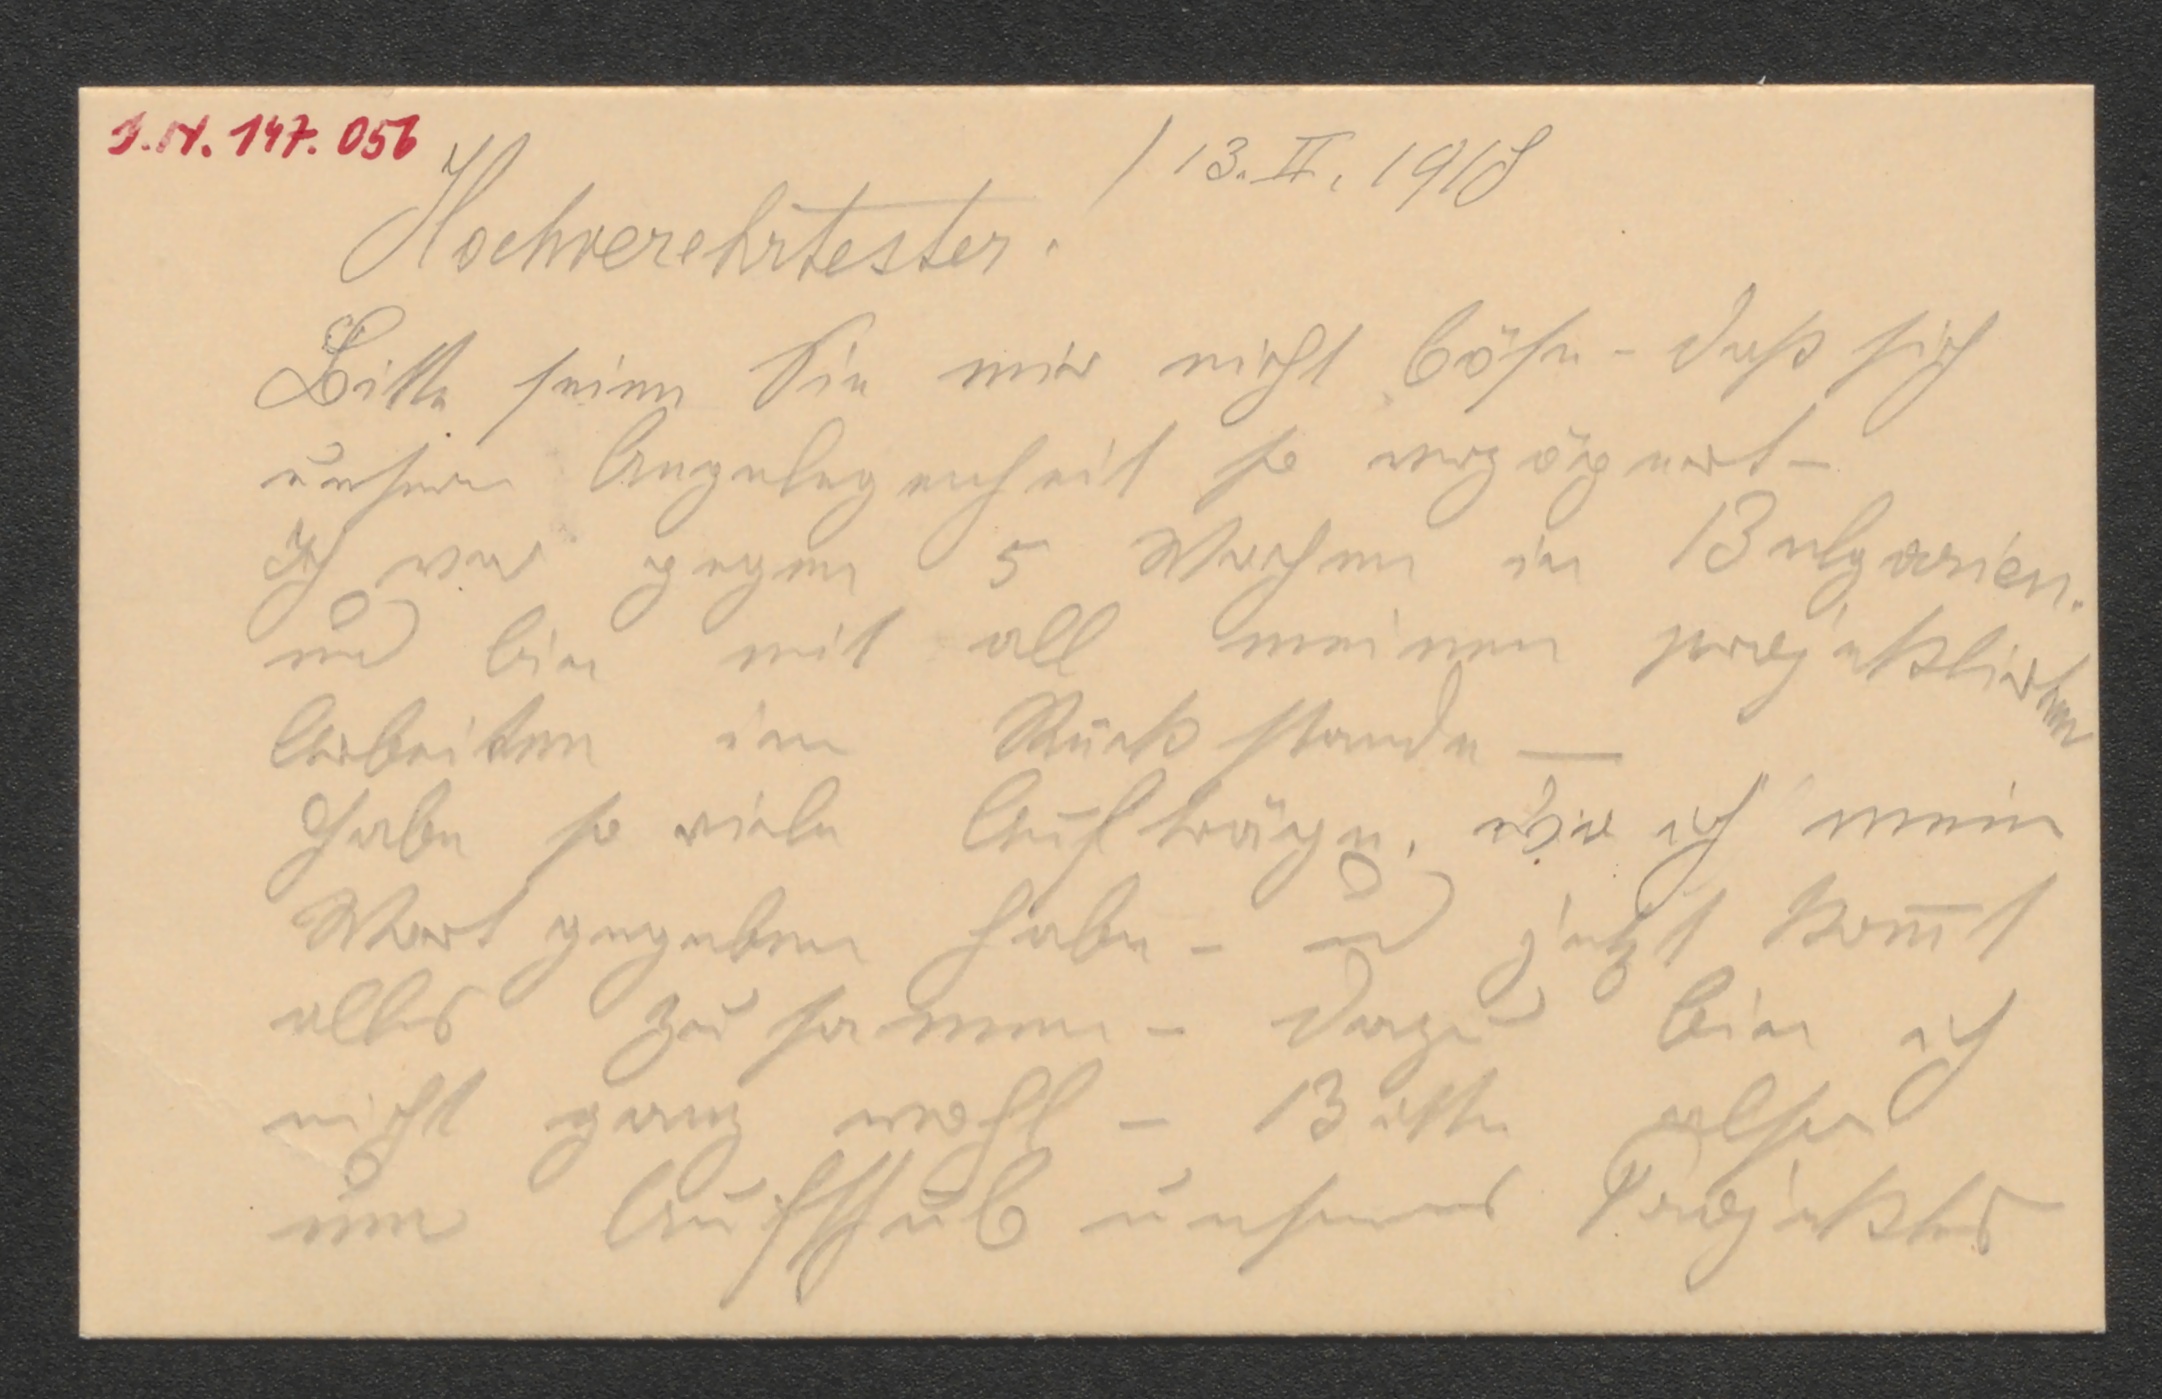 J.N. 147.056
/ 13. II. 1918
Hochverehrtester.
Bitte seien Sie mir nicht böse - daß sich
unsere Angelegenheit so verzögert -
Ich war gegen 5 Wochen in Bulgarien.
und bin mit all meinen projektierten
Arbeiten im Rückstande —
habe so viele Aufträge, wo ich mein
Wort gegeben habe - und jetzt kom̄t
alles zusammen - dazu bin ich
nicht ganz wohl - Bitte also
um Aufschub unseres Projektes